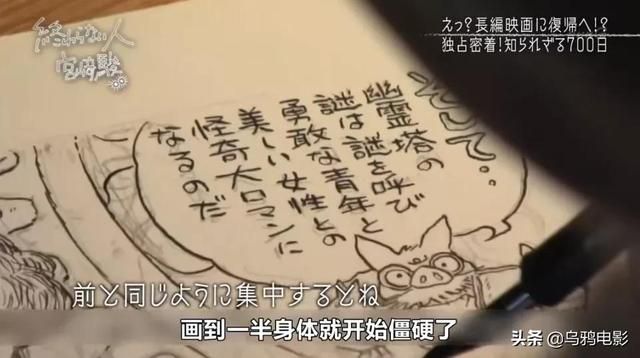 終わらない人
宮崎駿
えっ?長編映画に復帰へ!?
独占密着!知られざる700日
そして・・
幽霊塔の
謎は謎を呼び
勇敢な青年と
美しい女性との
怪奇大ロマンに
なるのだ
前と同じように集中するとね
画到一半身体就开始僵硬了
头条 @乌鸦电影